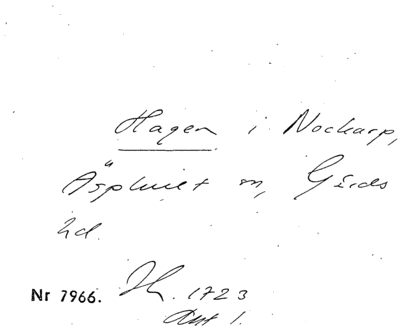 Hagen i Nockarp,
Äsphult sn, Gärds
hd.
Nr 7966. 1723
Akt 1.